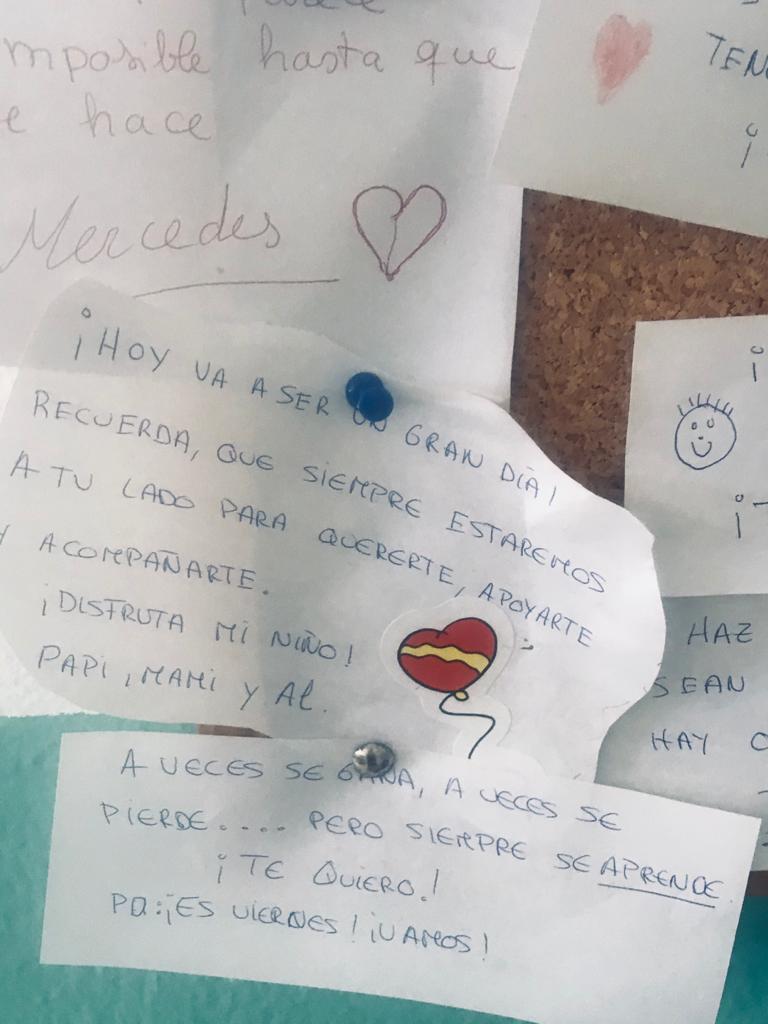 mposible hasta que
e hace
Mercedes
TEN
¡
¡HOY VA A SER UN GRAN DÍA!
RECUERDA, QUE SIEMPRE ESTAREMOS
A TU LADO PARA QUERERTE, APOYARTE
Y ACOMPAÑARTE.
¡DISTRUTA MI NIÑO!
PAPI, MAMI Y Al.
¡
¡T
HAZ
SEAN
HAY C
A VECES SE GANA, A VECES SE
PIERDE.... PERO SIEMPRE SE APRENDE.
¡TE QUIERO!
PD:¡ES VIERNES! ¡VAMOS!